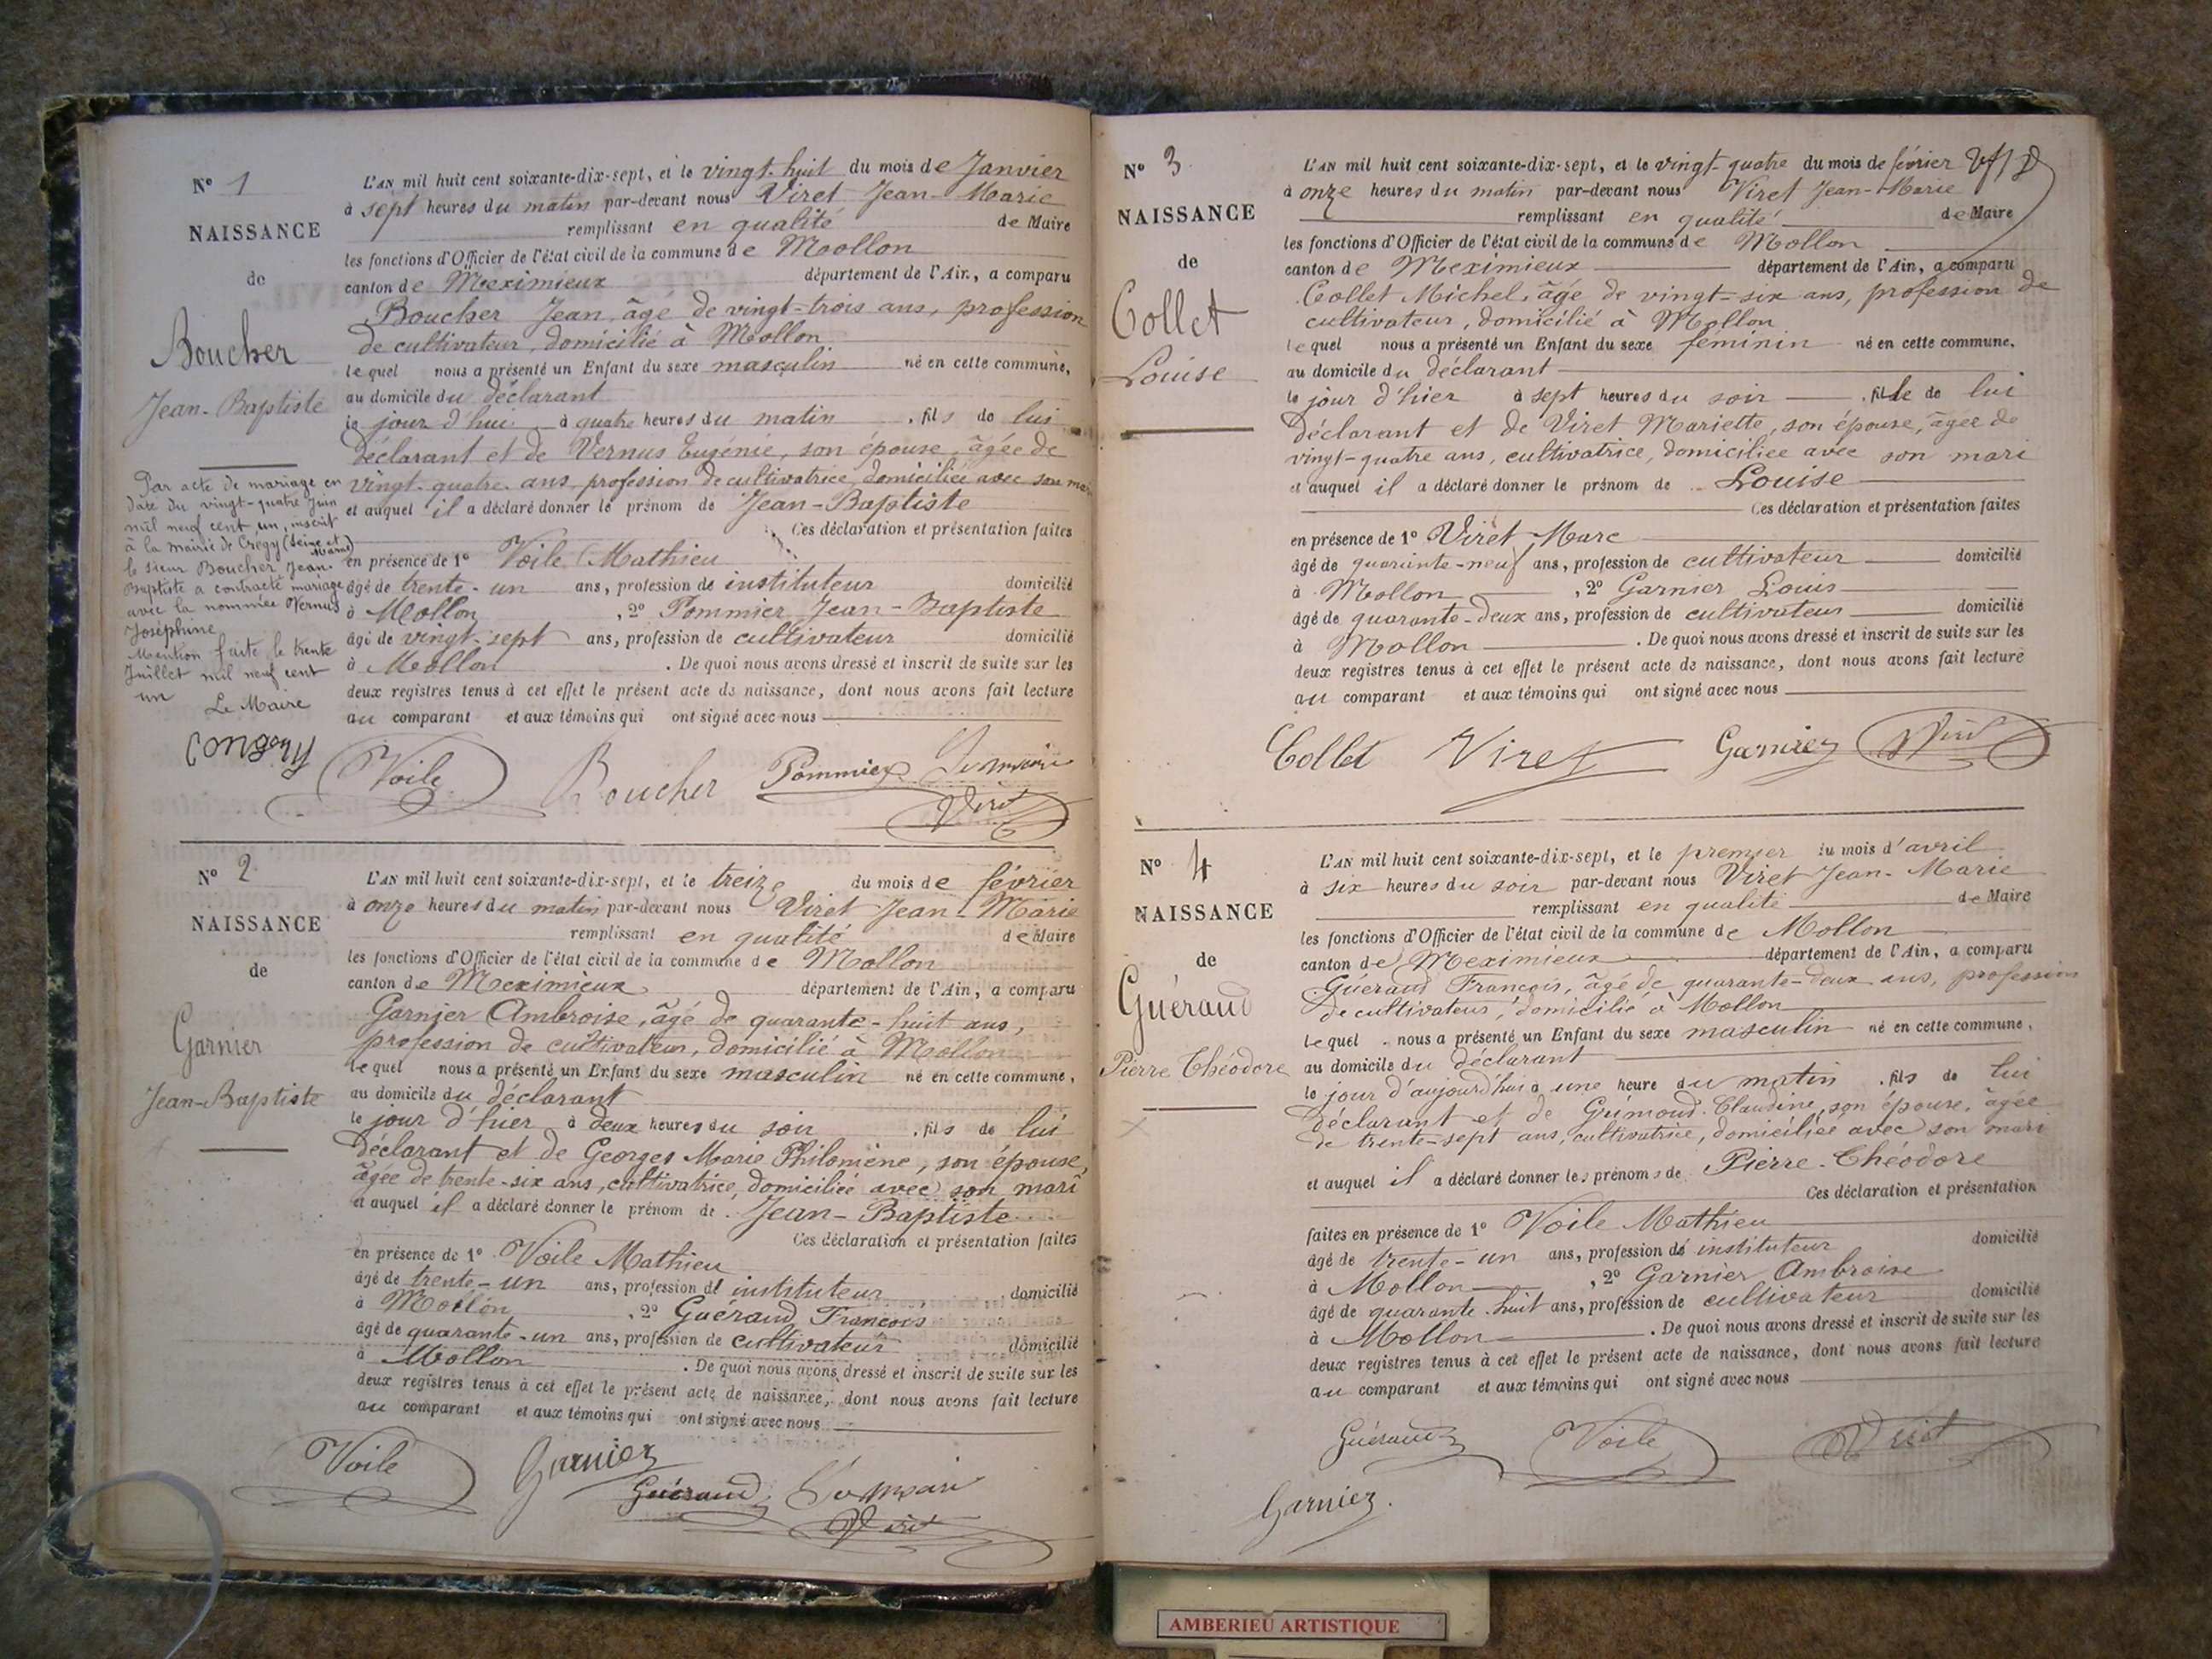 Nº 1
NAISSANCE
de
Boucher
Jean-Baptiste
Par acte de mariage en
date du vingt-quatre Juin
mil neuf cent un, inscrit
à la mairie de Crégy (Seine et Marne)
le sieur Boucher Jean
Baptiste a contracté mariage
avec la nommée Vernus
Joséphine
Mention faite le trente
Juillet mil neuf cent
un
Le Maire
L'AN mil huit cent soixante-dix-sept, et le vingt-huit du mois de Janvier
à sept heures du matin par-devant nous Viret Jean-Marie
remplissant en qualité de Maire
les fonctions d'Officier de l'état civil de la commune de Mollon
canton de Meximieux département de l'Ain, a comparu
Boucher Jean, âgé de vingt-trois ans, profession
de cultivateur, domicilié à Mollon
lequel nous a présenté un Enfant du sexe masculin né en cette commune,
au domicile du déclarant
le jour d'hui à quatre heures du matin, fils de lui
déclarant et de Vernus Eugénie, son épouse, âgée de
vingt-quatre ans, profession de cultivatrice, domiciliée avec son mari
et auquel il a déclaré donner le prénom de Jean-Baptiste
Ces déclaration et présentation faites
en présence de 1º Voile Mathieu
âgé de trente-un ans, profession de instituteur domicilié
à Mollon, 2º Pommier Jean-Baptiste
âgé de vingt-sept ans, profession de cultivateur domicilié
à Mollon. De quoi nous avons dressé et inscrit de suite sur les
deux registres tenus à cet effet le présent acte de naissance, dont nous avons fait lecture
au comparant et aux témoins qui ont signé avec nous
Voile Boucher Pommier
Viret
Nº 2
NAISSANCE
de
Garnier
Jean-Baptiste
L'AN mil huit cent soixante-dix-sept, et le treize du mois de février
à onze heures du matin par-devant nous Viret Jean-Marie
remplissant en qualité de Maire
les fonctions d'Officier de l'état civil de la commune de Mollon
canton de Meximieux département de l'Ain, a comparu
Garnier Ambroise, âgé de quarante-huit ans,
profession de cultivateur, domicilié à Mollon
lequel nous a présenté un Enfant du sexe masculin né en cette commune,
au domicile du déclarant
le jour d'hier à deux heures du soir, fils de lui
déclarant et de Georges Marie Philomène, son épouse,
âgée de trente-six ans, cultivatrice, domiciliée avec son mari
et auquel il a déclaré donner le prénom de Jean-Baptiste
Ces déclaration et présentation faites
en présence de 1º Voile Mathieu
âgé de trente-un ans, profession d'instituteur domicilié
à Mollon, 2º Guéraud François
âgé de quarante-un ans, profession de cultivateur domicilié
à Mollon. De quoi nous avons dressé et inscrit de suite sur les
deux registres tenus à cet effet le présent acte de naissance, dont nous avons fait lecture
au comparant et aux témoins qui ont signé avec nous
Voile Garnier
Guéraud
Viret
Nº 3
NAISSANCE
de
Collet
Louise
L'AN mil huit cent soixante-dix-sept, et le vingt-quatre du mois de février
à onze heures du matin par-devant nous Viret Jean-Marie
remplissant en qualité de Maire
les fonctions d'Officier de l'état civil de la commune de Mollon
canton de Meximieux département de l'Ain, a comparu
Collet Michel, âgé de vingt-six ans, profession de
cultivateur, domicilié à Mollon
lequel nous a présenté un Enfant du sexe féminin né en cette commune,
au domicile du déclarant
le jour d'hier à sept heures du soir, fille de lui
déclarant et de Viret Mariette, son épouse, âgée de
vingt-quatre ans, cultivatrice, domiciliée avec son mari
et auquel il a déclaré donner le prénom de Louise
Ces déclaration et présentation faites
en présence de 1º Viret Marc
âgé de quarante-neuf ans, profession de cultivateur domicilié
à Mollon, 2º Garnier Louis
âgé de quarante-deux ans, profession de cultivateur domicilié
à Mollon. De quoi nous avons dressé et inscrit de suite sur les
deux registres tenus à cet effet le présent acte de naissance, dont nous avons fait lecture
au comparant et aux témoins qui ont signé avec nous
Collet Viret Garnier Viret
Nº 4
NAISSANCE
de
Guéraud
Pierre Théodore
L'AN mil huit cent soixante-dix-sept, et le premier du mois d'avril
à six heures du soir par-devant nous Viret Jean-Marie
remplissant en qualité de Maire
les fonctions d'Officier de l'état civil de la commune de Mollon
canton de Meximieux département de l'Ain, a comparu
Guéraud François, âgé de quarante-deux ans, profession
de cultivateur, domicilié à Mollon
lequel nous a présenté un Enfant du sexe masculin né en cette commune,
au domicile du déclarant
le jour d'aujourd'hui à une heure du matin, fils de lui
déclarant et de Grimoud Claudine, son épouse, âgée
de trente-sept ans, cultivatrice, domiciliée avec son mari
et auquel il a déclaré donner les prénoms de Pierre-Théodore
Ces déclaration et présentation
faites en présence de 1º Voile Mathieu
âgé de trente-un ans, profession d'instituteur domicilié
à Mollon, 2º Garnier Ambroise
âgé de quarante-huit ans, profession de cultivateur domicilié
à Mollon. De quoi nous avons dressé et inscrit de suite sur les
deux registres tenus à cet effet le présent acte de naissance, dont nous avons fait lecture
au comparant et aux témoins qui ont signé avec nous
Guéraud Voile Viret
Garnier.
AMBERIEU ARTISTIQUE